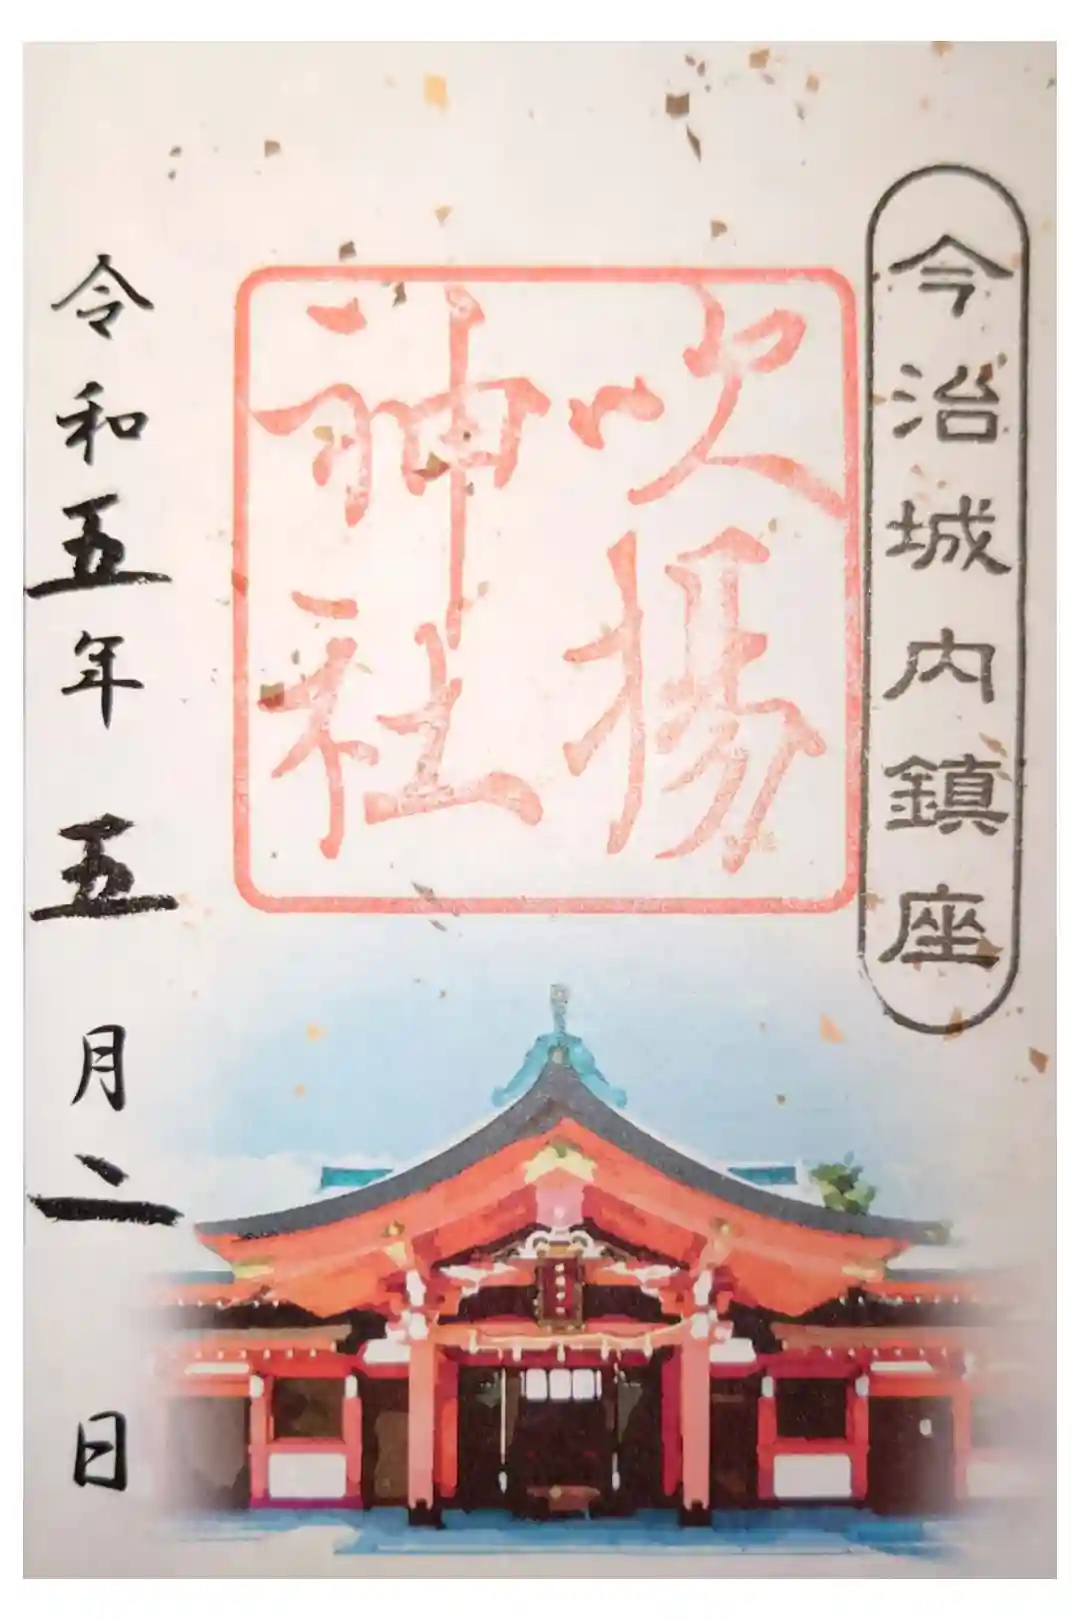 今治城内鎮座
吹揚
神社
令和五年五月二日